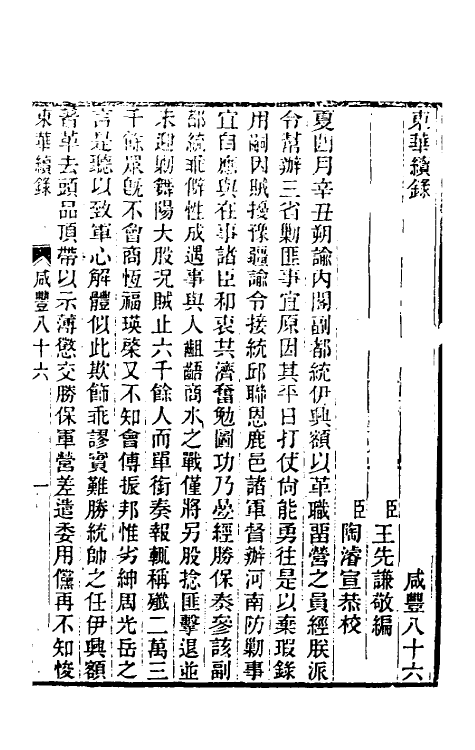 東華續錄
咸豐八十六
臣王先謙敬編
臣陶濬宣恭校
夏四月辛丑朔諭內閣副都統伊興額以革職留營之員經朕派
令幫辦三省勦匪事宜原因其平日打仗尙能勇往是以棄瑕錄
用嗣因賊擾豫疆諭令接統邱聯恩鹿邑諸軍督辦河南防勦事
宜自應與在事諸臣和衷共濟奮勉圖功乃屢經勝保奏參該副
都統乖僻性成遇事與人齟齬商水之戰僅將另股捻匪擊退並
未迎勦舞陽大股況賊止六千餘人而單銜奏報輒稱殲二萬三
千餘眾旣不會商恆福瑛棨又不知會傅振邦惟劣紳周光岳之
言是聽以致軍心解體似此欺飾乖謬實難勝統帥之任伊興額
著革去頭品頂帶以示薄懲交勝保軍營差遣委用儻再不知悛
東華續錄
咸豐八十六
一